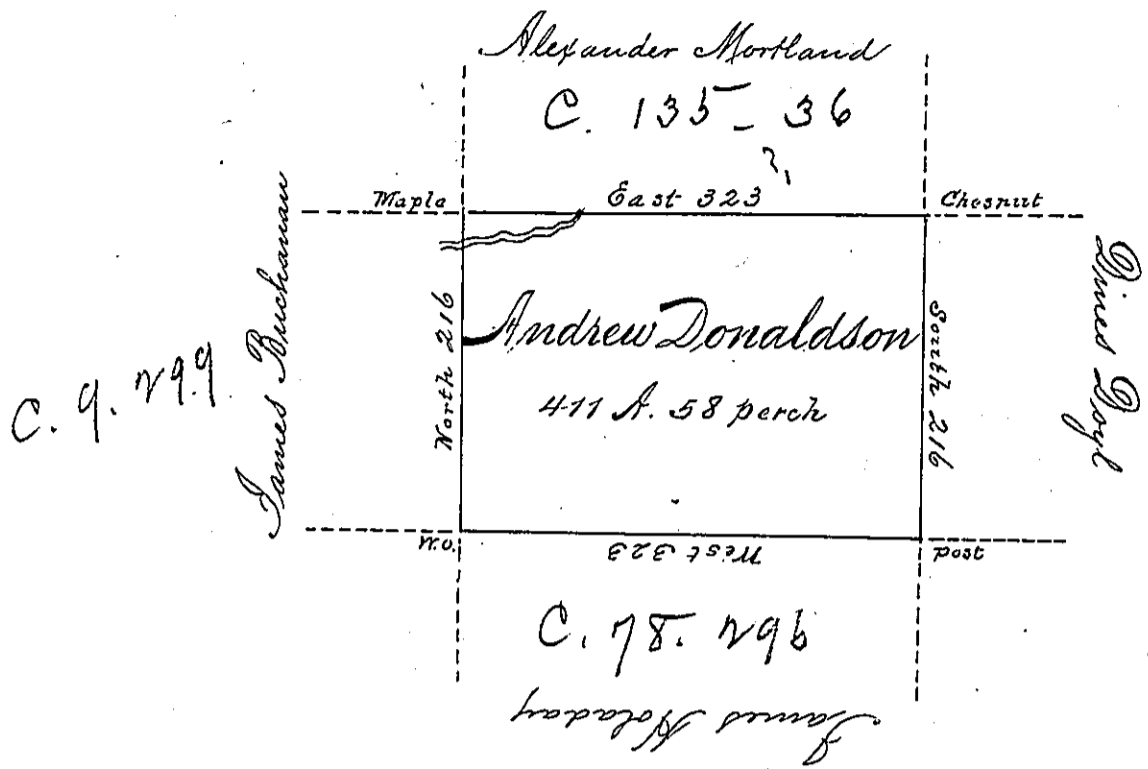 Alexander Mortland
C. 135-36
Maple
East 323
Chesnut
James Buchanan
C. 9. 299
North 216
Andrew Donaldson
411 A. 58 perch
South 216
Dines Doyl
W.O.
West 323
post
C. 78. 296
James Holaday